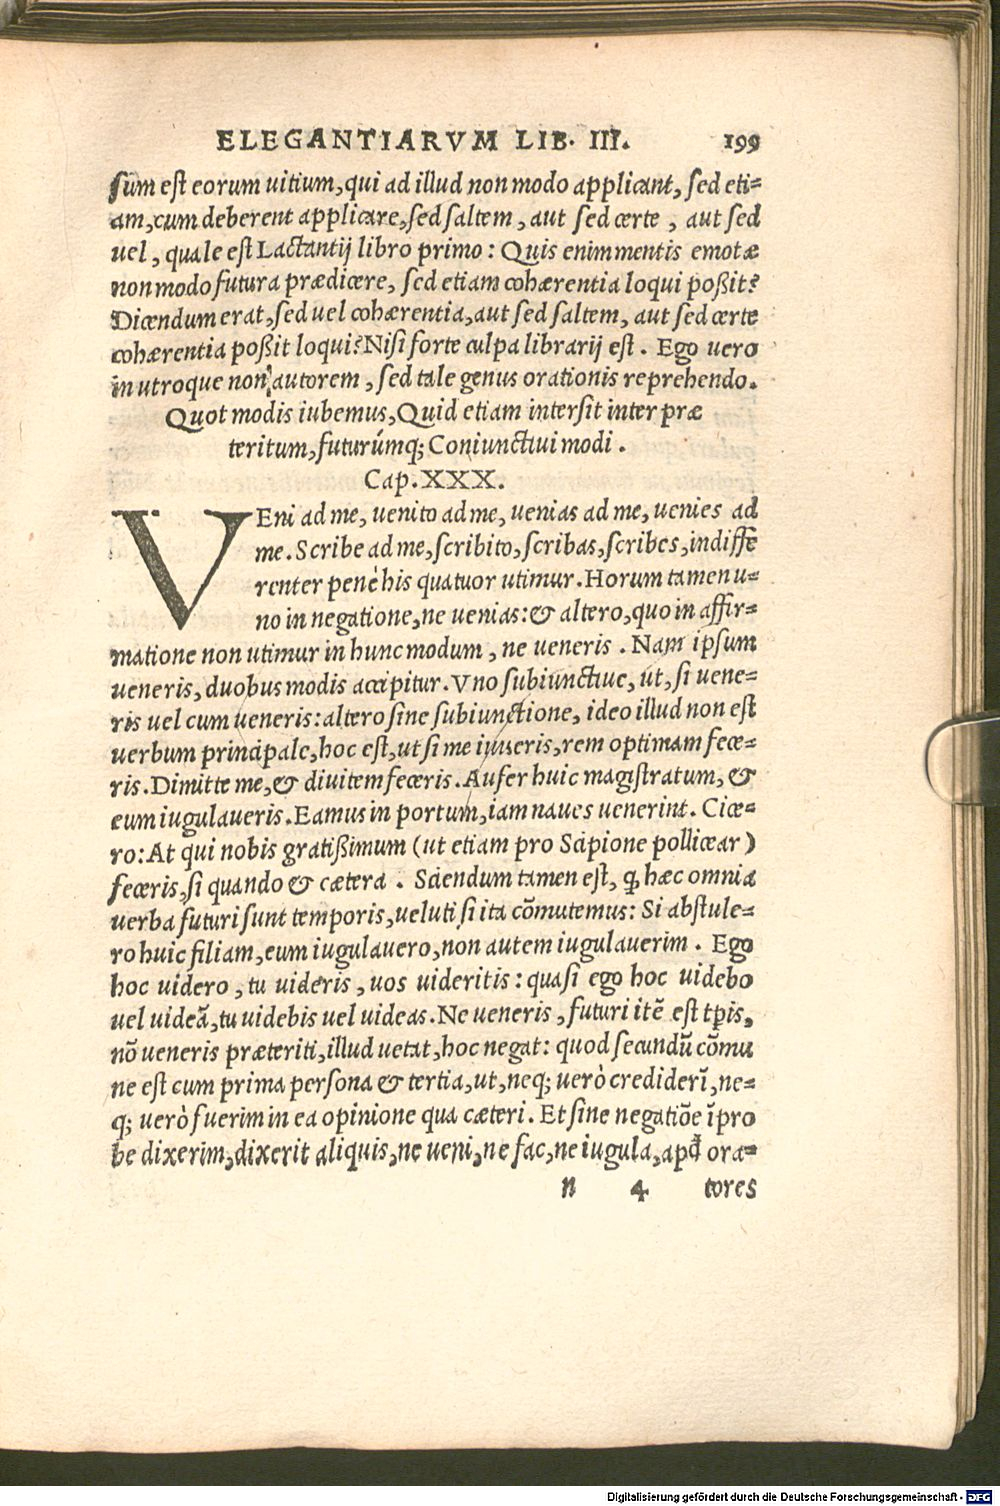 ELEGANTIARVM LIB. III. 199
sum est eorum uitium, qui ad illud non modo applicant, sed eti=
am, cum deberent applicare, sed saltem, aut sed certe, aut sed
uel, quale est Lactantij libro primo: Quis enim mentis emotæ
non modo futura prædicere, sed etiam cohærentia loqui poßit?
Dicendum erat, sed uel cohærentia, aut sed saltem, aut sed certe
cohærentia poßit loqui? Nisi forte culpa librarij est. Ego uero
in utroque non autorem, sed tale genus orationis reprehendo.
Quot modis iubemus, Quid etiam intersit inter præ
teritum, futurúmq; Coniunctiui modi.
Cap. XXX.
VEni ad me, uenito ad me, uenias ad me, uenies ad
me. Scribe ad me, scribito, scribas, scribes, indiffe
renter penè his quatuor utimur. Horum tamen u=
no in negatione, ne uenias: & altero, quo in affir=
matione non utimur in hunc modum, ne ueneris. Nam ipsum
ueneris, duobus modis accipitur. Vno subiunctiue, ut, si uene=
ris uel cum ueneris: altero sine subiunctione, ideo illud non est
uerbum principale, hoc est, ut si me iuueris, rem optimam fece=
ris. Dimitte me, & diuitem feceris. Aufer huic magistratum, &
eum iugulaueris. Eamus in portum, iam naues uenerint. Cice=
ro: At qui nobis gratißimum (ut etiam pro Scipione pollicear)
feceris, si quando & cætera. Sciendum tamen est, ꝙ hæc omnia
uerba futuri sunt temporis, ueluti si ita cõmutemus: Si abstule=
ro huic filiam, eum iugulauero, non autem iugulauerim. Ego
hoc uidero, tu uideris, uos uideritis: quasi ego hoc uidebo
uel uideã, tu uidebis uel uideas. Ne ueneris, futuri itẽ est tp̃is,
nõ ueneris præteriti, illud uetat, hoc negat: quod secundũ cõmu
ne est cum prima persona & tertia, ut, neq; uerò crediderĩ, ne=
q; uerò fuerim in ea opinione qua cæteri. Et sine negatiõe ĩpro
be dixerim, dixerit aliquis, ne ueni, ne fac, ne iugula, apđ ora=
n 4 tores
Digitalisierung gefördert durch die Deutsche Forschungsgemeinschaft - DFG